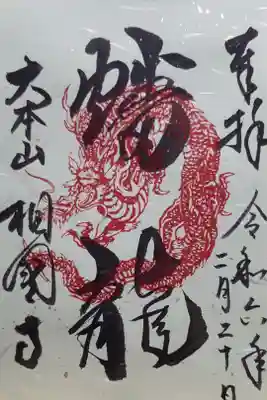 奉拝
令和六年二月二十日
蟠龍
大本山 相国寺